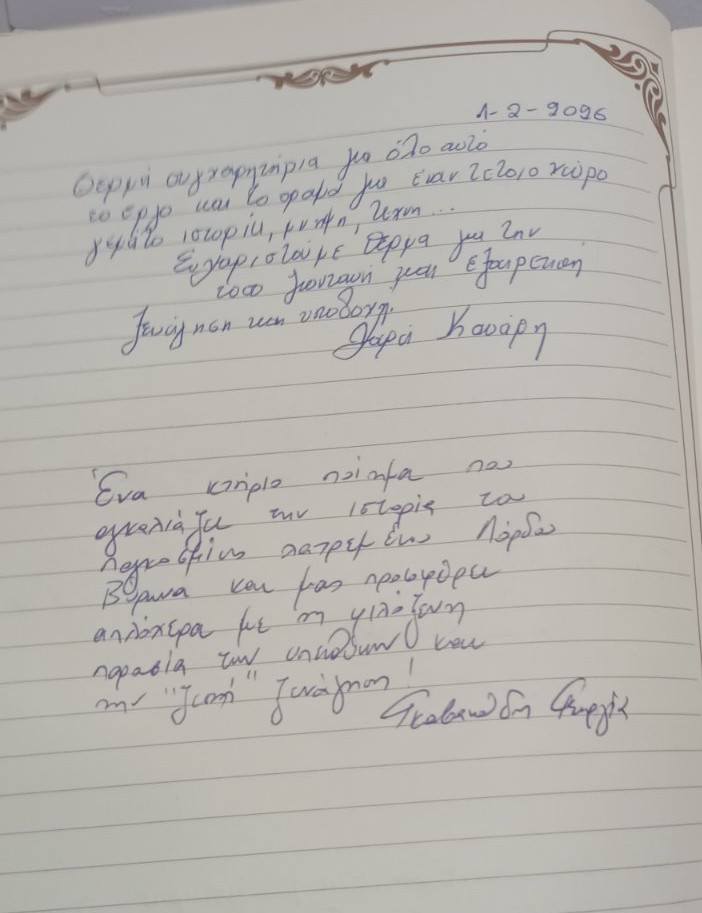 1-2-2026
Θερμή συγχαρητήρια για όλο αυτό
το έργο και το όραμά για έναν τέτοιο χώρο
γεμάτο ιστορία, μνήμη, τέχνη...
Ευχαριστούμε θερμά για την
τόσο ζωντανή και εξαιρετική
ξενάγηση και υποδοχή.
Χαρά
Ένα κτήριο ποίημα που
αγκαλιάζει την ιστορία του
παγκοσμίως λατρεμένου Λόρδου
Βύρωνα και μας προσφέρει
απλόχερα με τη φιλόξενη
παρουσία των υπευθύνων και
την "ζεστή" ξενάγηση!
Γεωργία